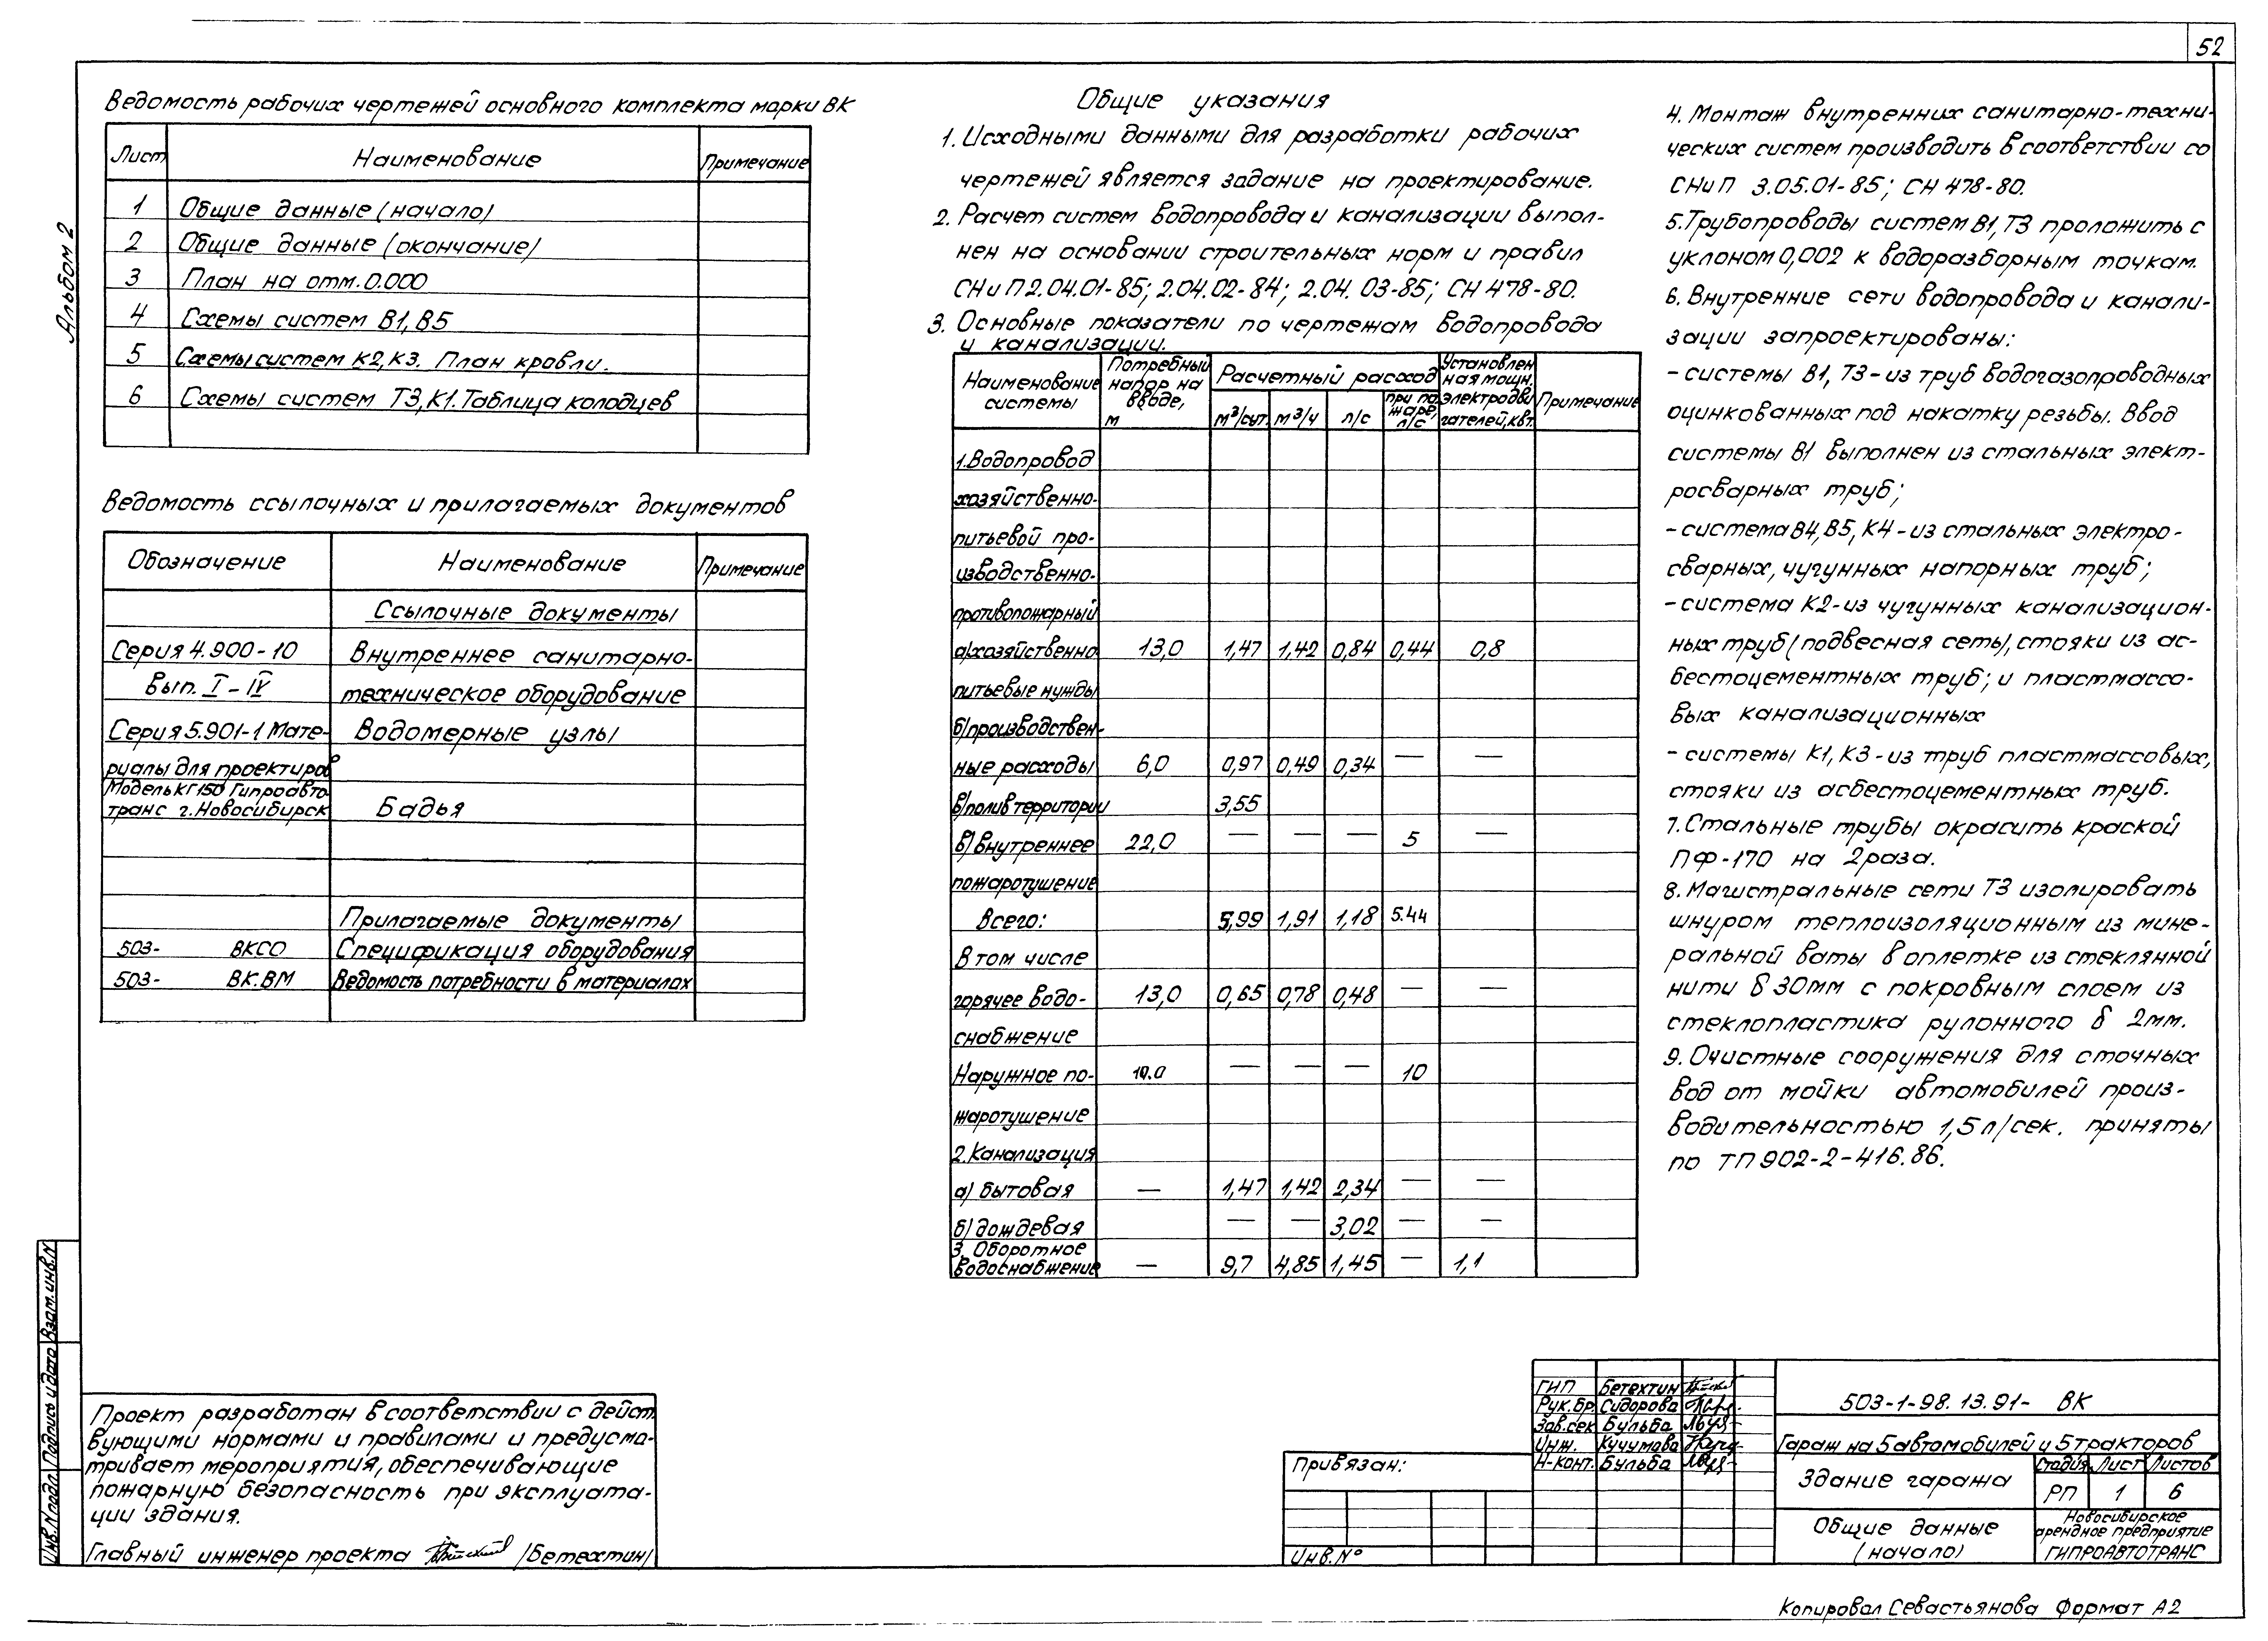 52
Альбом 2
Ведомость рабочих чертежей основного комплекта марки ВК
Лист Наименование Примечание
1 Общие данные (начало)
2 Общие данные (окончание)
3 План на отм. 0.000
4 Схемы систем В1, В5
5 Схемы систем К2, К3. План кровли.
6 Схемы систем Т3, К1. Таблица колодцев
Ведомость ссылочных и прилагаемых документов
Обозначение Наименование Примечание
Ссылочные документы
Серия 4.900-10 Внутреннее санитарно-
Вып. I-IV техническое оборудование
Серия 5.901-1 Мате- Водомерные узлы
риалы для проектиров
Модель КГ 150 Гипроавто-
транс г. Новосибирск Бадья
Прилагаемые документы
503- ВКСО Спецификация оборудования
503- ВК.ВМ Ведомость потребности в материалах
Общие указания
1. Исходными данными для разработки рабочих
чертежей является задание на проектирование.
2. Расчет систем водопровода и канализации выпол-
нен на основании строительных норм и правил
СНиП 2.04.01-85; 2.04.02-84; 2.04.03-85; СН 478-80.
3. Основные показатели по чертежам водопровода
и канализации.
Наименование системы
Потребный напор на вводе, м
Расчетный расход
м³/сут. м³/ч л/с при пожаре, л/с
Установлен ная мощн. электродви гателей, квт.
Примечание
1. Водопровод
хозяйственно-
питьевой про-
изводственно-
противопожарный
а) хозяйственно 13,0 1,47 1,42 0,84 0,44 0,8
питьевые нужды
б) производствен-
ные расходы 6,0 0,97 0,49 0,34 — —
в) полив территории 3,55
в) внутреннее 22,0 — — — 5 —
пожаротушение
Всего: 5,99 1,91 1,18 5.44
В том числе
горячее водо- 13,0 0,65 0,78 0,48 — —
снабжение
Наружное по- 10.0 — — — 10
жаротушение
2. Канализация
а) бытовая — 1,47 1,42 2,34 — —
б) дождевая — — 3,02 — —
3. Оборотное
водоснабжение — 9,7 4,85 1,45 — 1,1
4. Монтаж внутренних санитарно-техни-
ческих систем производить в соответствии со
СНиП 3.05.01-85; СН 478-80.
5. Трубопроводы систем В1, Т3 проложить с
уклоном 0,002 к водоразборным точкам.
6. Внутренние сети водопровода и канали-
зации запроектированы:
- системы В1, Т3 - из труб водогазопроводных
оцинкованных под накатку резьбы. Ввод
системы В1 выполнен из стальных элект-
росварных труб;
- система В4, В5, К4 - из стальных электро-
сварных, чугунных напорных труб;
- система К2 - из чугунных канализацион-
ных труб (подвесная сеть), стояки из ас-
бестоцементных труб; и пластмассо-
вых канализационных
- системы К1, К3 - из труб пластмассовых,
стояки из асбестоцементных труб.
7. Стальные трубы окрасить краской
ПФ-170 на 2 раза.
8. Магистральные сети Т3 изолировать
шнуром теплоизоляционным из мине-
ральной ваты в оплетке из стеклянной
нити δ 30мм с покровным слоем из
стеклопластика рулонного δ 2мм.
9. Очистные сооружения для сточных
вод от мойки автомобилей произ-
водительностью 1,5 л/сек. приняты
по ТП 902-2-416.86.
Инв.N подл. Подпись и дата Взам. инв.N
Проект разработан в соответствии с дейст
вующими нормами и правилами и предусма-
тривает мероприятия, обеспечивающие
пожарную безопасность при эксплуата-
ции здания.
Главный инженер проекта /Бетехтин/
Привязан:
Инв. N°
ГИП Бетехтин
Рук. бр. Сидорова
Зав. сек Бульба
Инж. Кучумова
Н-конт. Бульба
503-1-98.13.91- ВК
Гараж на 5 автомобилей и 5 тракторов
Здание гаража
Стадия Лист Листов
РП 1 6
Общие данные
(начало)
Новосибирское
арендное предприятие
ГИПРОАВТОТРАНС
Копировал Севастьянова Формат А2